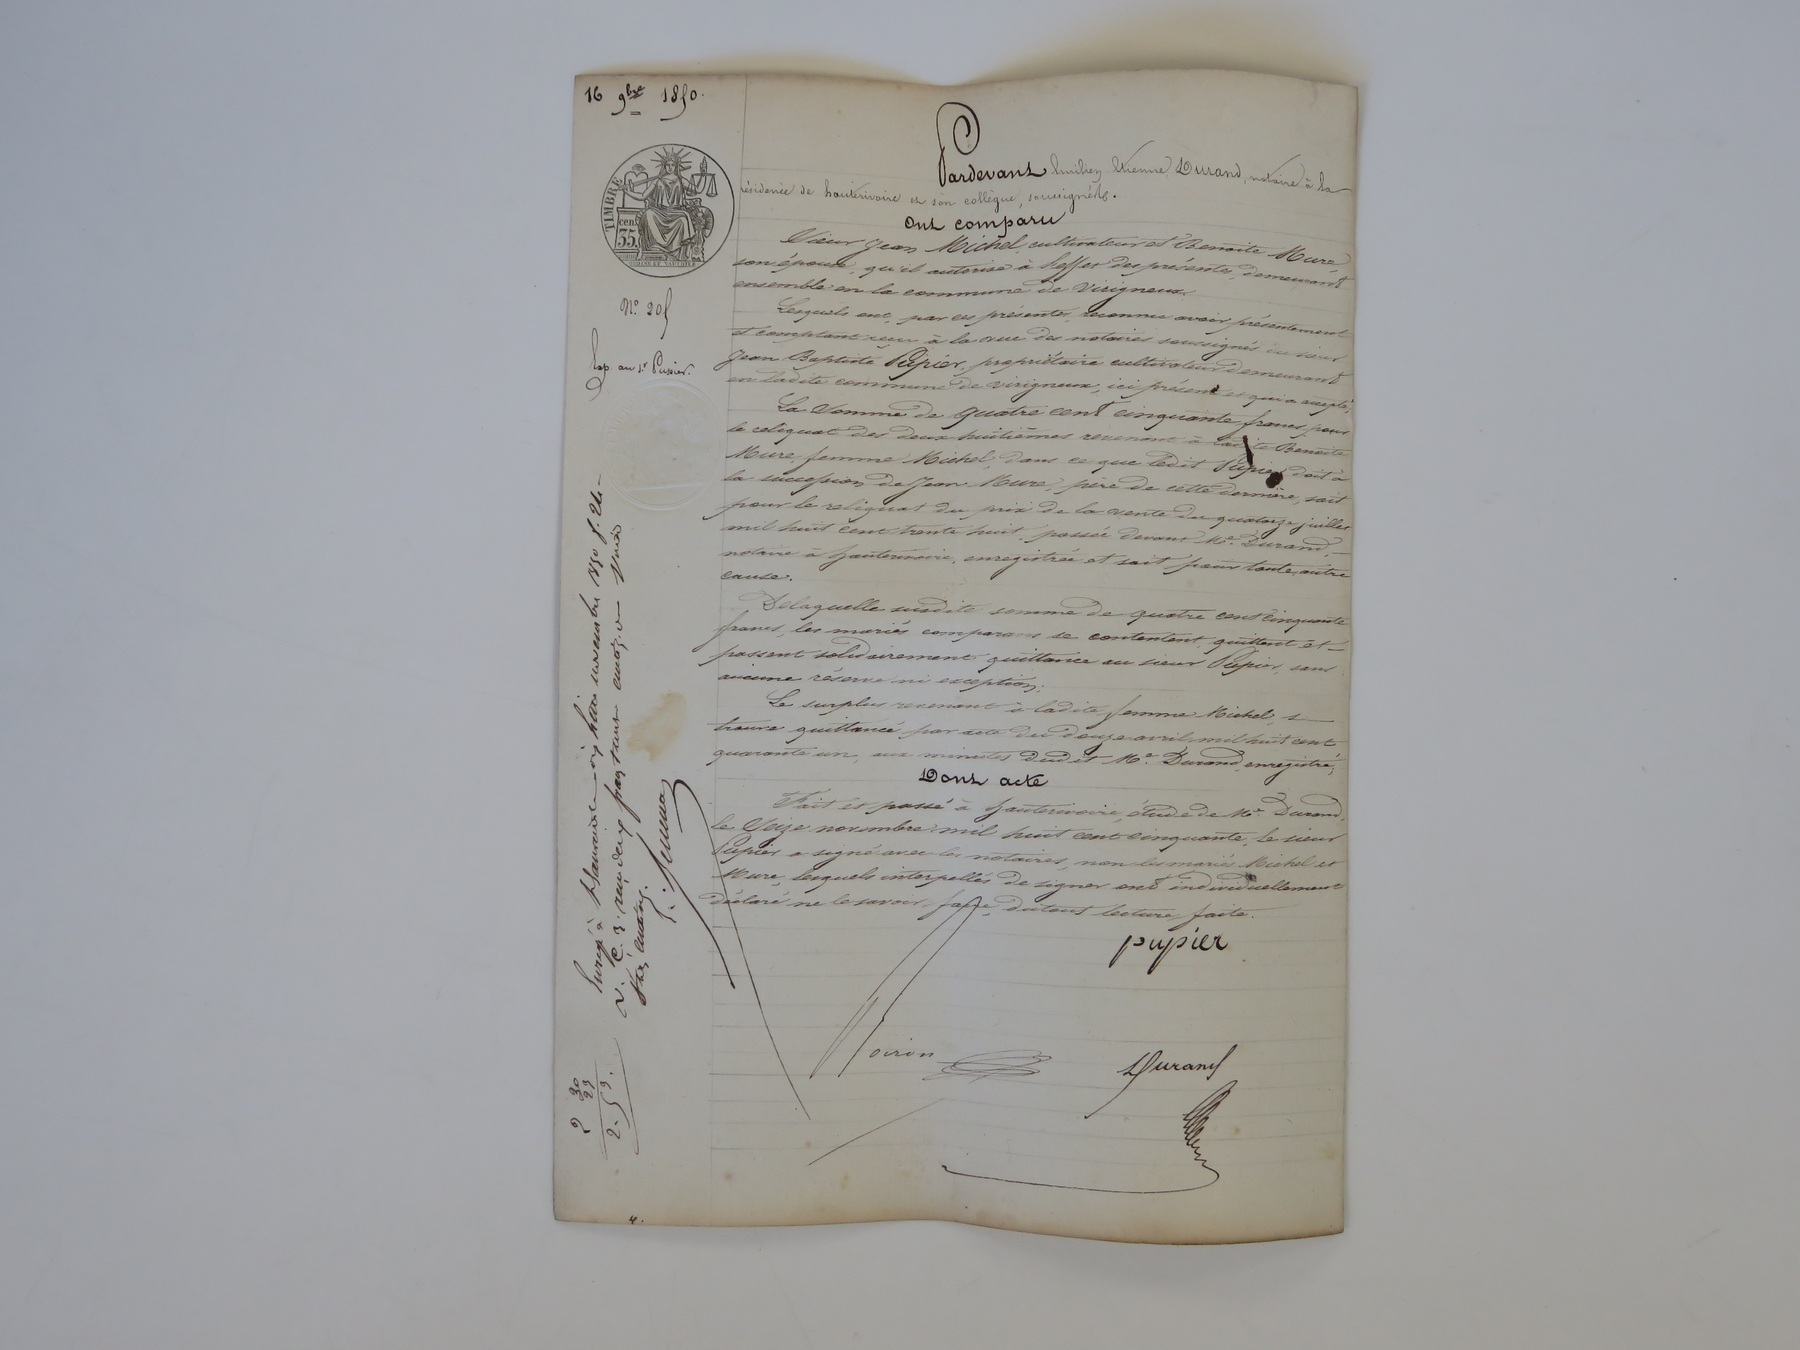 16 9bre 1850.
TIMBRE
cen.
35.
No. 205
Exp. au sr. Pupier.
Pardevant Emilien Etienne Durand, notaire à la
résidence de hauterivoire et son collègue, soussignés.
Ont comparu
Sieur Jean Michel, cultivateur et Benoite Mure
son épouse, qu'il autorise à l'effet des présentes, demeurant
ensemble en la commune de Virigneux.
Lesquels ont, par ces présentes, reconnu avoir présentement
et comptant reçu à la vue des notaires soussignés du sieur
Jean Baptiste Pupier, propriétaire cultivateur demeurant
en ladite commune de virigneux, ici présent et qui a accepté,
La Somme de quatre cent cinquante francs, pour
le reliquat des deux huitièmes revenant à ladite Benoite
Mure, femme Michel, dans ce que ledit Pupier doit à
la succession de Jean Mure, père de cette dernière, soit
pour le reliquat du prix de la vente du quatorze juillet
mil huit cent trente huit, passée devant Me. Durand,
notaire à hauterivoire, enregistrée et soit pour toute autre
cause.
Delaquelle susdite somme de quatre cent cinquante
francs, les mariés comparans se contentent, quittent et
passent solidairement quittance au sieur Pupier, sans
aucune réserve ni exception.
Le surplus revenant à ladite femme Michel, se
trouve quittancé par acte du douze avril mil huit cent
quarante un, aux minutes dudit Me. Durand, enregistré,
Dont acte
Fait et passé à hauterivoire, étude de Me. Durand,
le Seize novembre mil huit cent cinquante, le sieur
Pupier a signé avec les notaires, non les mariés Michel et
Mure, lesquels interpellés de signer ont individuellement
déclaré ne le savoir faire, du tout lecture faite.
pupier
Voiron
Durand
novembre 1850
30
23
2. 53.